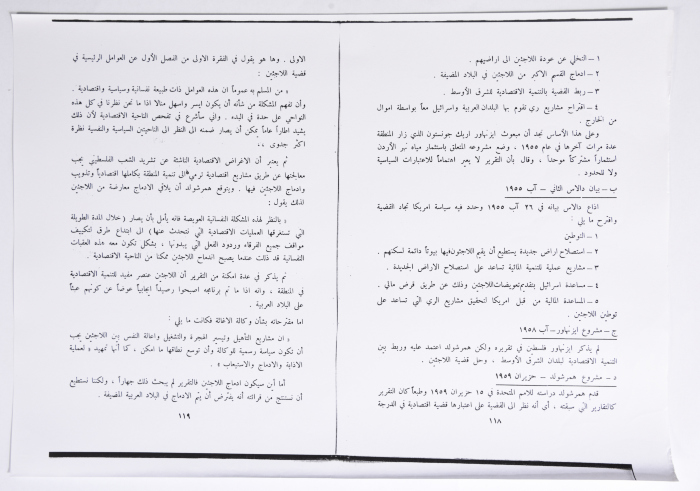 ١ – التخلي عن عودة اللاجئين الى اراضيهم .
٢ – ادماج القسم الاكبر من اللاجئين في البلاد المضيفة .
٣ – ربط القضية بالتنمية الاقتصادية للشرق الأوسط .
٤ – اقتراح مشاريع ري تقوم بها البلدان العربية واسرائيل معاً بواسطة اموال
من الخارج .
وعلى هذا الأساس نجد أن مبعوث ايزنهاور اريك جونستون الذي زار المنطقة
عدة مرات آخرها في عام ١٩٥٥ ، وضع مشروعه المتعلق باستثمار مياه نهر الأردن
استثماراً مشتركاً موحداً ، وقال بأن التقرير لا يعير اهتماماً للاعتبارات السياسية
ولا للحدود .
ب – بيان دالاس الثاني – آب ١٩٥٥
اذاع دالاس بيانه في ٢٦ آب ١٩٥٥ وحدد فيه سياسة امريكا تجاه القضية
واقترح ما يلي :
١ – التوطين
٢ – استصلاح اراض جديدة يستطيع أن يقيم اللاجئون فيها بيوتاً دائمة لسكنهم .
٣ – مشاريع عملية للتنمية المائية تساعد على استصلاح الاراض الجديدة .
٤ – مساعدة اسرائيل بتقديم تعويضات للاجئين وذلك عن طريق قرض مالي .
٥ – المساعدة المالية من قبل امريكا لتحقيق مشاريع الري التي تساعد على
توطين اللاجئين .
ج – مشروع ايزنهاور – آب ١٩٥٨
لم يذكر ايزنهاور فلسطين في تقريره ولكن همرشولد اعتمد عليه وربط بين
التنمية الاقتصادية لبلدان الشرق الأوسط ، وحل قضية اللاجئين .
د – مشروع همرشولد – حزيران ١٩٥٩
قدم همرشولد دراسته للامم المتحدة في ١٥ حزيران ١٩٥٩ وطبعاً كان التقرير
كالتقارير التي سبقته ، أي أنه نظر الى القضية على اعتبارها قضية اقتصادية في الدرجة
١١٨
الاولى . وها هو يقول في الفقرة الاولى من الفصل الأول عن العوامل الرئيسية في
قضية اللاجئين :
« من المسلم به عموماً ان هذه العوامل ذات طبيعة نفسانية وسياسية واقتصادية .
وأن تفهم المشكلة من شأنه أن يكون ايسر واسهل منالا اذا ما نحن نظرنا في كل هذه
النواحي على حدة في البدء . واني سأشرع في تفحص الناحية الاقتصادية لأن ذلك
يشيد اطاراً عاماً يمكن أن يصار ضمنه الى النظر الى الناحيتين السياسية والنفسية نظرة
اكثر جدوى »
ثم يعتبر أن الاغراض الاقتصادية الناشئة عن تشريد الشعب الفلسطيني يجب
معالجتها عن طريق مشاريع اقتصادية ترمي الى تنمية المنطقة بكاملها اقتصادياً وتذويب
وادماج اللاجئين فيها . ويتوقع همرشولد أن يلاقي الادماج معارضة من اللاجئين
لذلك يقول :
« بالنظر لهذه المشكلة النفسانية العويصة فانه يأمل بأن يصار (خلال المدة الطويلة
التي تستغرقها العمليات الاقتصادية التي نتحدث عنها) الى ابتداع طرق لتكييف
مواقف جميع الفرقاء وردود الفعل التي يبدونها ، بشكل تكون معه هذه العقبات
النفسانية قد ذللت عندما يصبح اندماج اللاجئين ممكنا من الناحية الاقتصادية .
ثم يذكر في عدة امكنة من التقرير أن اللاجئين عنصر مفيد للتنمية الاقتصادية
في المنطقة ، وانه اذا ما تم برنامجه اصبحوا رصيداً ايجابياً عوضاً عن كونهم عبئاً
على البلاد العربية .
اما مقترحاته بشأن وكالة الاغاثة فكانت ما يلي :
« ان مشاريع التأهيل وتيسير الهجرة والتشغيل واعالة النفس بين اللاجئين يجب
أن تكون سياسة رسمية للوكالة وأن توسع نطاقها ما امكن ، كما أنها تمهيد « لعملية
الاذابة والادماج والاستيعاب » .
أما أين سيكون ادماج اللاجئين فالتقرير لم يبحث ذلك جهاراً ، ولكننا نستطيع
أن نستنتج من قراءته أنه يفترض أن يتم الادماج في البلاد العربية المضيفة .
١١٩